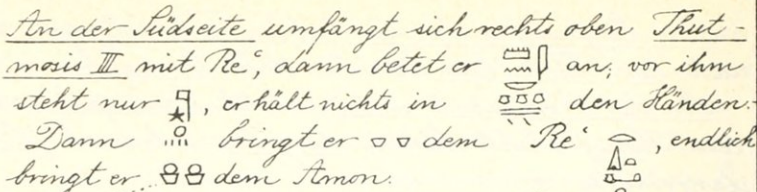 An der Südseite umfängt sich rechts oben Thut-
mosis III mit Reʿ, dann betet er an; vor ihm
steht nur , er hält nichts in den Händen.
Dann bringt er dem Reʿ , endlich
bringt er dem Amon.